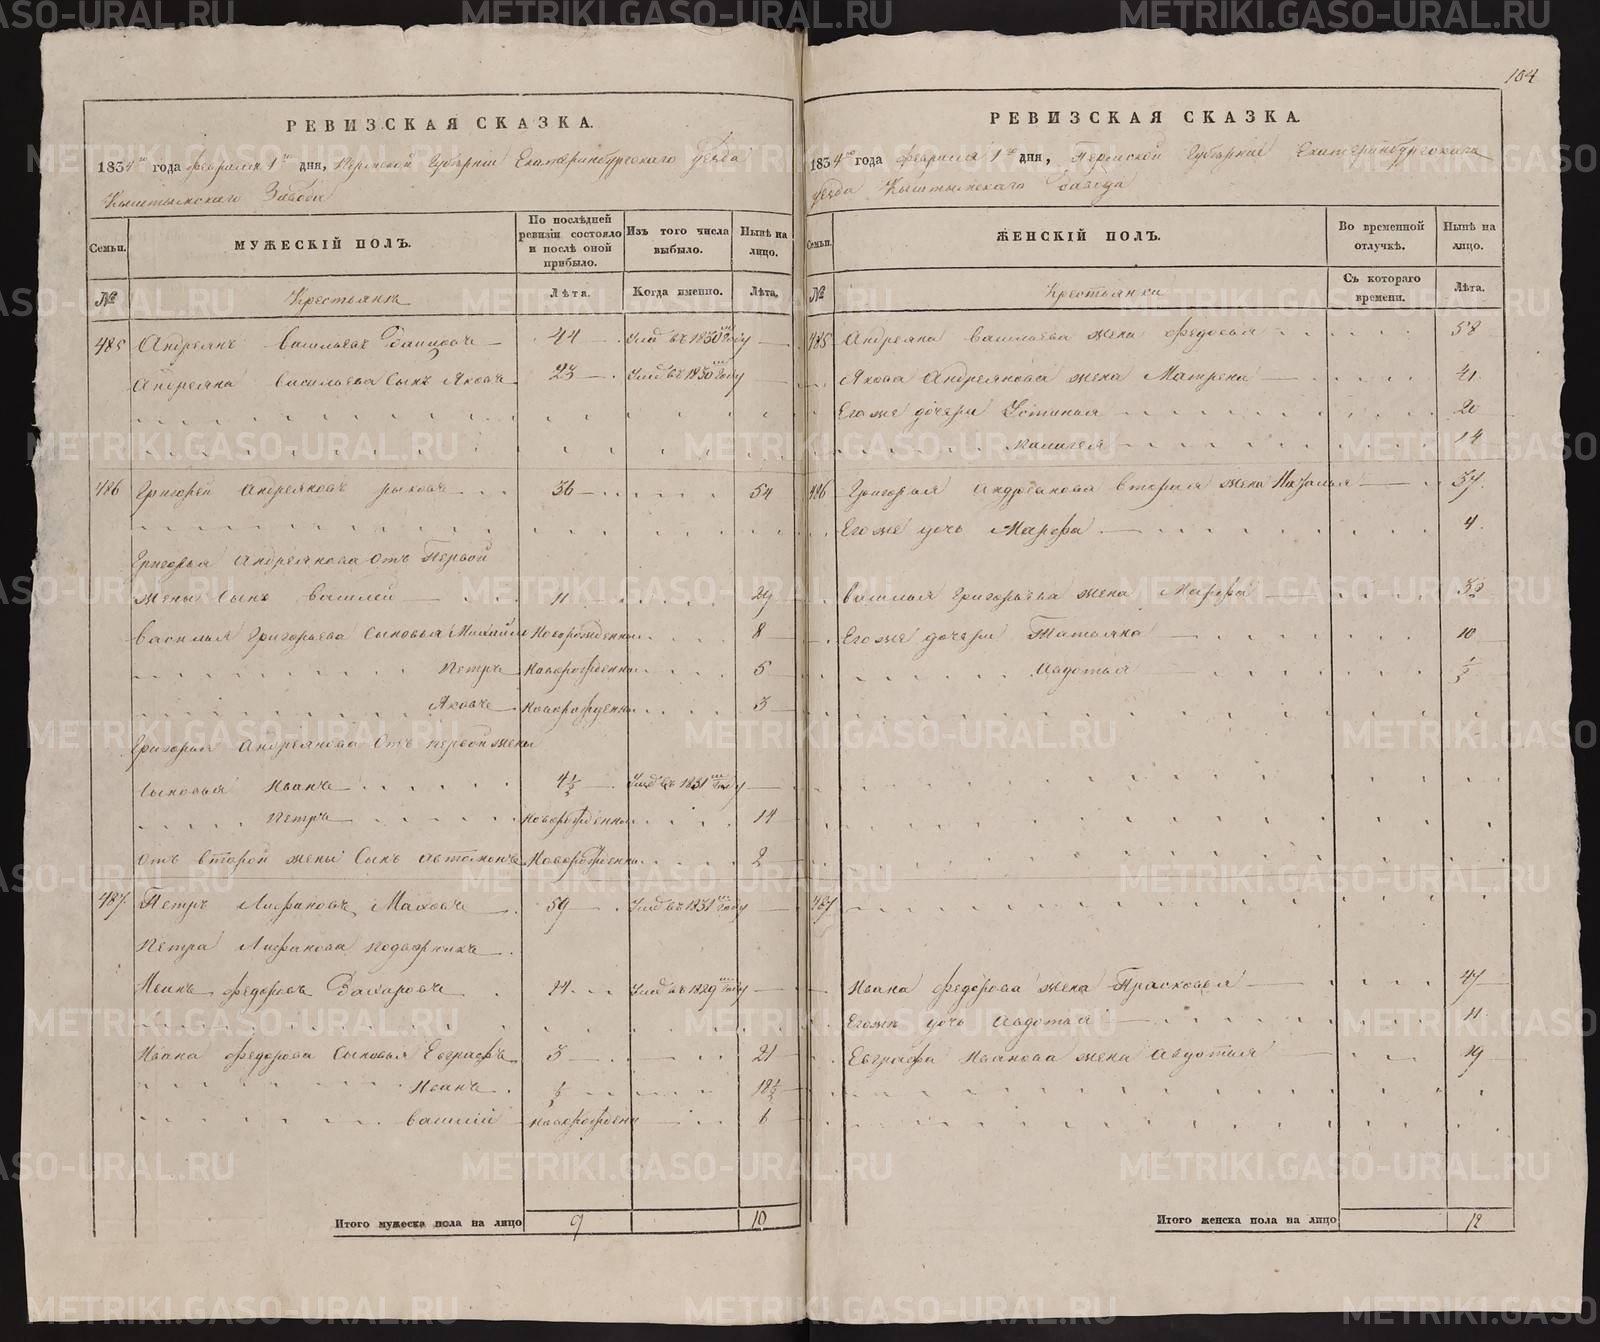 РЕВИЗСКАЯ СКАЗКА.
1834го года февраля 1го дня, Пермской Губерніи Екатеринбургскаго уезда
Кыштымскаго Завода
Семьи.
МУЖЕСКІЙ ПОЛЪ.
По послѣдней ревизіи состояло и послѣ оной прибыло.
Изъ того числа выбыло.
Нынѣ на лицо.
№
Крестьянъ
Лѣта.
Когда именно.
Лѣта.
485 Андреянъ Васильевъ 44 Умд въ 1830 году
Андреяна Васильева Сынъ Яковъ 23 Умд въ 1830 году
486 Григорей Андреяновъ 36 54
Григорья Андреянова отъ Первой
жены Сынъ Василей 11 29
Василья Григорьева Сыновья Михайло Новорожденны 8
Петръ Новорожденны 5
Яковъ Новорожденны 3
Григорья Андреянова отъ первой жены
Сыновья Иванъ 4½ Умд въ 1831 году
Петръ Новорожденны 14
отъ второй жены Сынъ Автомонъ Новорожденны 2
487 Петръ 59 Умд въ 1831 году
Петра
Иванъ Федоровъ Захаровъ 24 Умд въ 1829 году
Ивана Федорова Сыновья Евграфъ 3 21
Иванъ ½ 18½
Василій новорожденн 6
Итого мужеска пола на лицо 9 10
184
РЕВИЗСКАЯ СКАЗКА.
1834го года февраля 1го дня, Пермской Губерніи Екатеринбургскаго
уезда Кыштымскаго Завода
Семьи.
ЖЕНСКІЙ ПОЛЪ.
Во временной отлучкѣ.
Нынѣ на лицо.
№
Крестьянки
Съ котораго времени.
Лѣта.
485 Андреяна Васильева жена Федосья 58
Якова Андреянова жена Матрена 41
Его же дочери Устинья 20
Палагея 14
486 Григорья Андреянова вторая жена Наталья 37
Его же дочь Марфа 4
Василья Григорьева жена Марфа 32
Его же дочери Татьяна 10
Авдотья ½
487
Ивана Федорова жена Прасковья 47
Его же дочь Авдотья 11
Евграфа Иванова жена Авдотья 19
Итого женска пола на лицо 12
METRIKI.GASO-URAL.RU